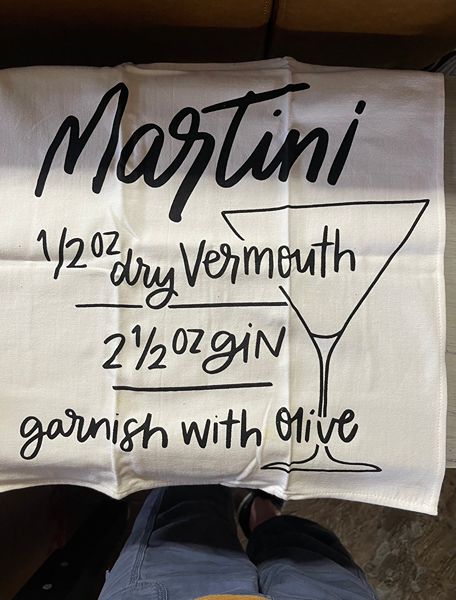 Martini
1/2 oz dry Vermouth
2 1/2 oz giN
garnish with olive